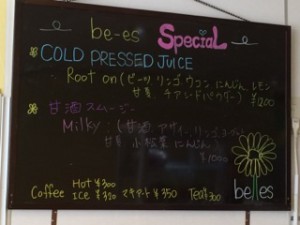 be-es Special
COLD PRESSED JUICE
Root on (ビーツ リンゴ ウコン にんじん レモン
甘夏、チアシード(パウダー)) ¥1200
甘酒スムージー
Milky : (甘酒 アサイー リンゴ
甘夏 小松菜 にんじん)
¥1000
Coffee Hot ¥300
ICE ¥350 マキアート ¥350 Tea ¥300
be-es